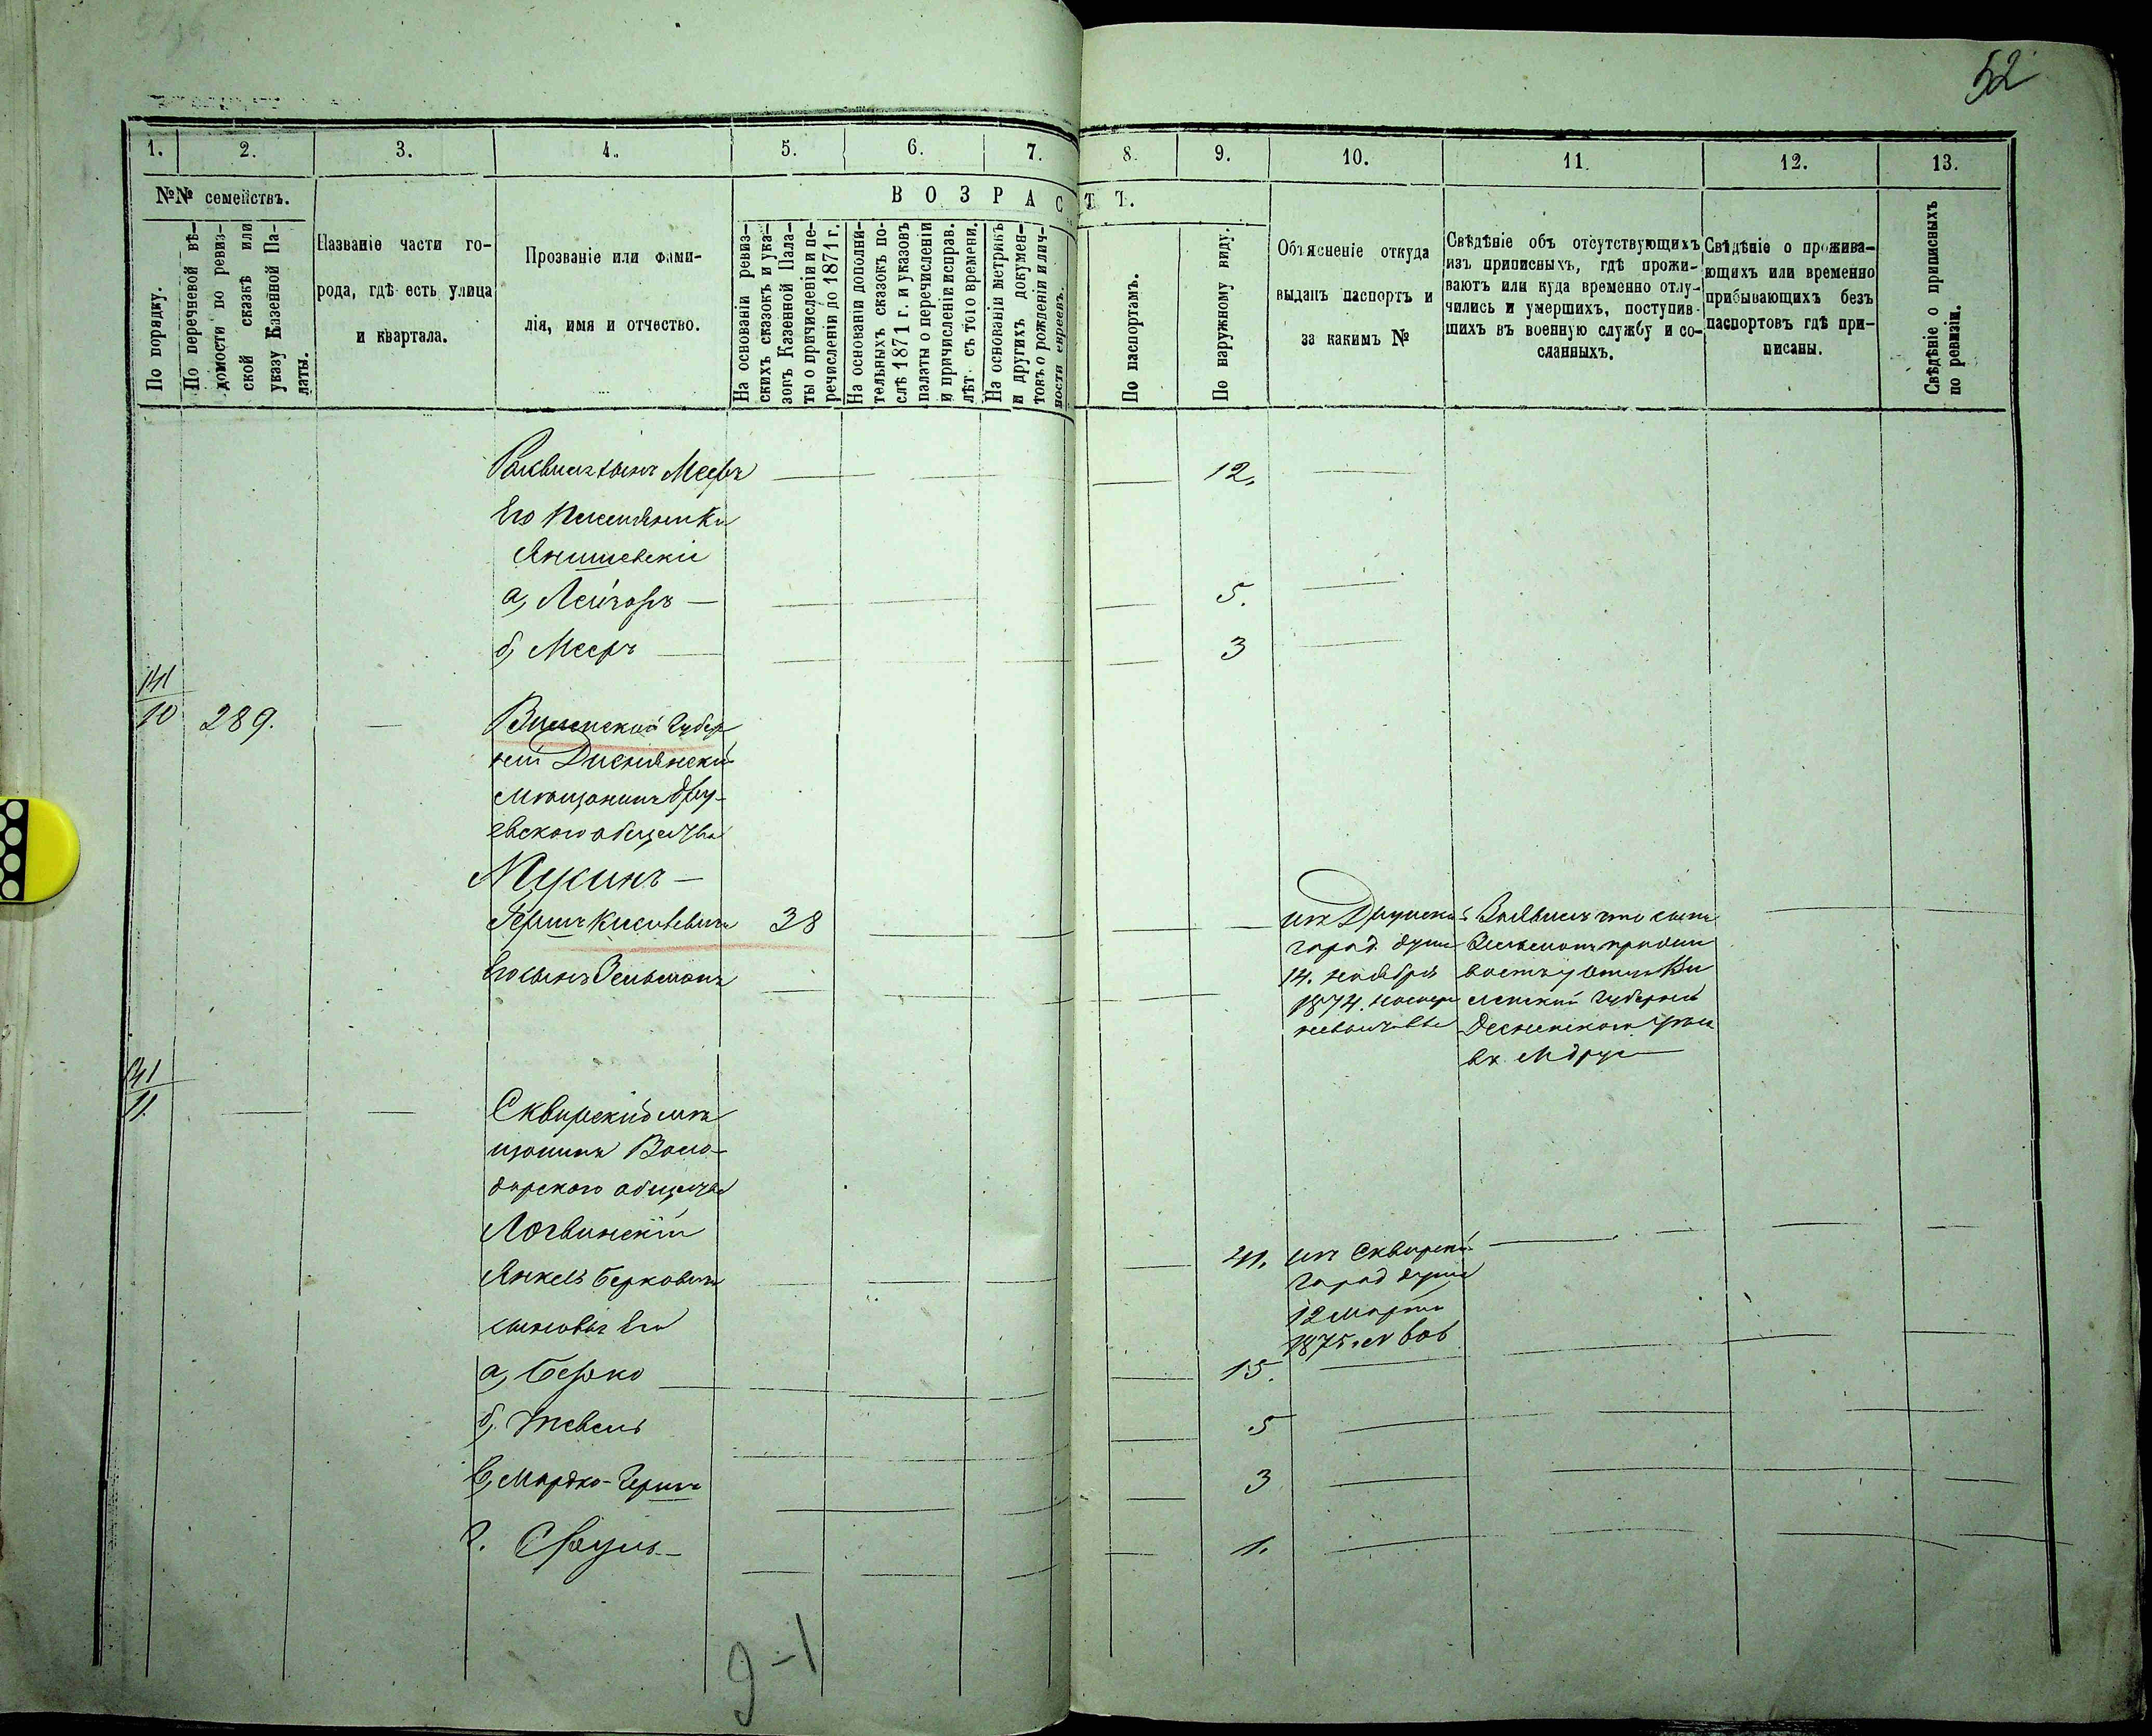 52
1. 2. 3. 4. 5. 6. 7. 8. 9. 10. 11. 12. 13.
№№ семействъ.
В О З Р А С Т Ъ.
По порядку.
По перечневой вѣ-
домости по ревиз-
ской сказкѣ или
указу Казенной Па-
латы.
Названіе части го-
рода, гдѣ есть улица
и квартала.
Прозваніе или фами-
лія, имя и отчество.
На основаніи ревиз-
скихъ сказокъ и ука-
зовъ Казенной Пала-
ты о причисленіи и пе-
речисленіи до 1871 г.
На основаніи дополни-
тельныхъ сказокъ по-
слѣ 1871 г. и указовъ
палаты о перечисленіи
и причисленіи исправ.
лѣт. съ того времени.
На основаніи метрикъ
и другихъ докумен-
товъ о рожденіи и лич-
ности евреевъ.
По паспортамъ.
По наружному виду.
Объясненіе откуда
выданъ паспортъ и
за какимъ №
Свѣдѣніе объ отсутствующихъ
изъ приписныхъ, гдѣ прожи-
ваютъ или куда временно отлу-
чились и умершихъ, поступив-
шихъ въ военную службу и со-
сланныхъ.
Свѣдѣніе о прожива-
ющихъ или временно
прибывающихъ безъ
паспортовъ гдѣ при-
писаны.
Свѣдѣніе о приписныхъ
по ревизіи.
сынъ Мееръ 12.
Его племянники
Янишевскіе
а, Лейзоръ 5.
б, Мееръ 3
141/10 289. Виленской Губер
ніи Дисненскій
мѣщанинъ Дру-
йскаго общества
Мусинъ
Гершъ 38 изъ Друйской Заявилъ что сынъ
город. думы Зельманъ прожи
Его сынъ Зельманъ 14. ноября ваетъ у Ви
1874. ленской Губерніи
Дисненскомъ
въ М Друе
141/11. Сквирскій мѣ
щанинъ Воло-
дарскаго общества
Логвинскій
Янкель Берковичъ 41. изъ Сквирской
город думы
сыновья Его 12 марта
1875 г №
а, Берко 15.
б, Тевель 5
в, Мордко-Гершъ 3
г. Сруль 1.
9-1